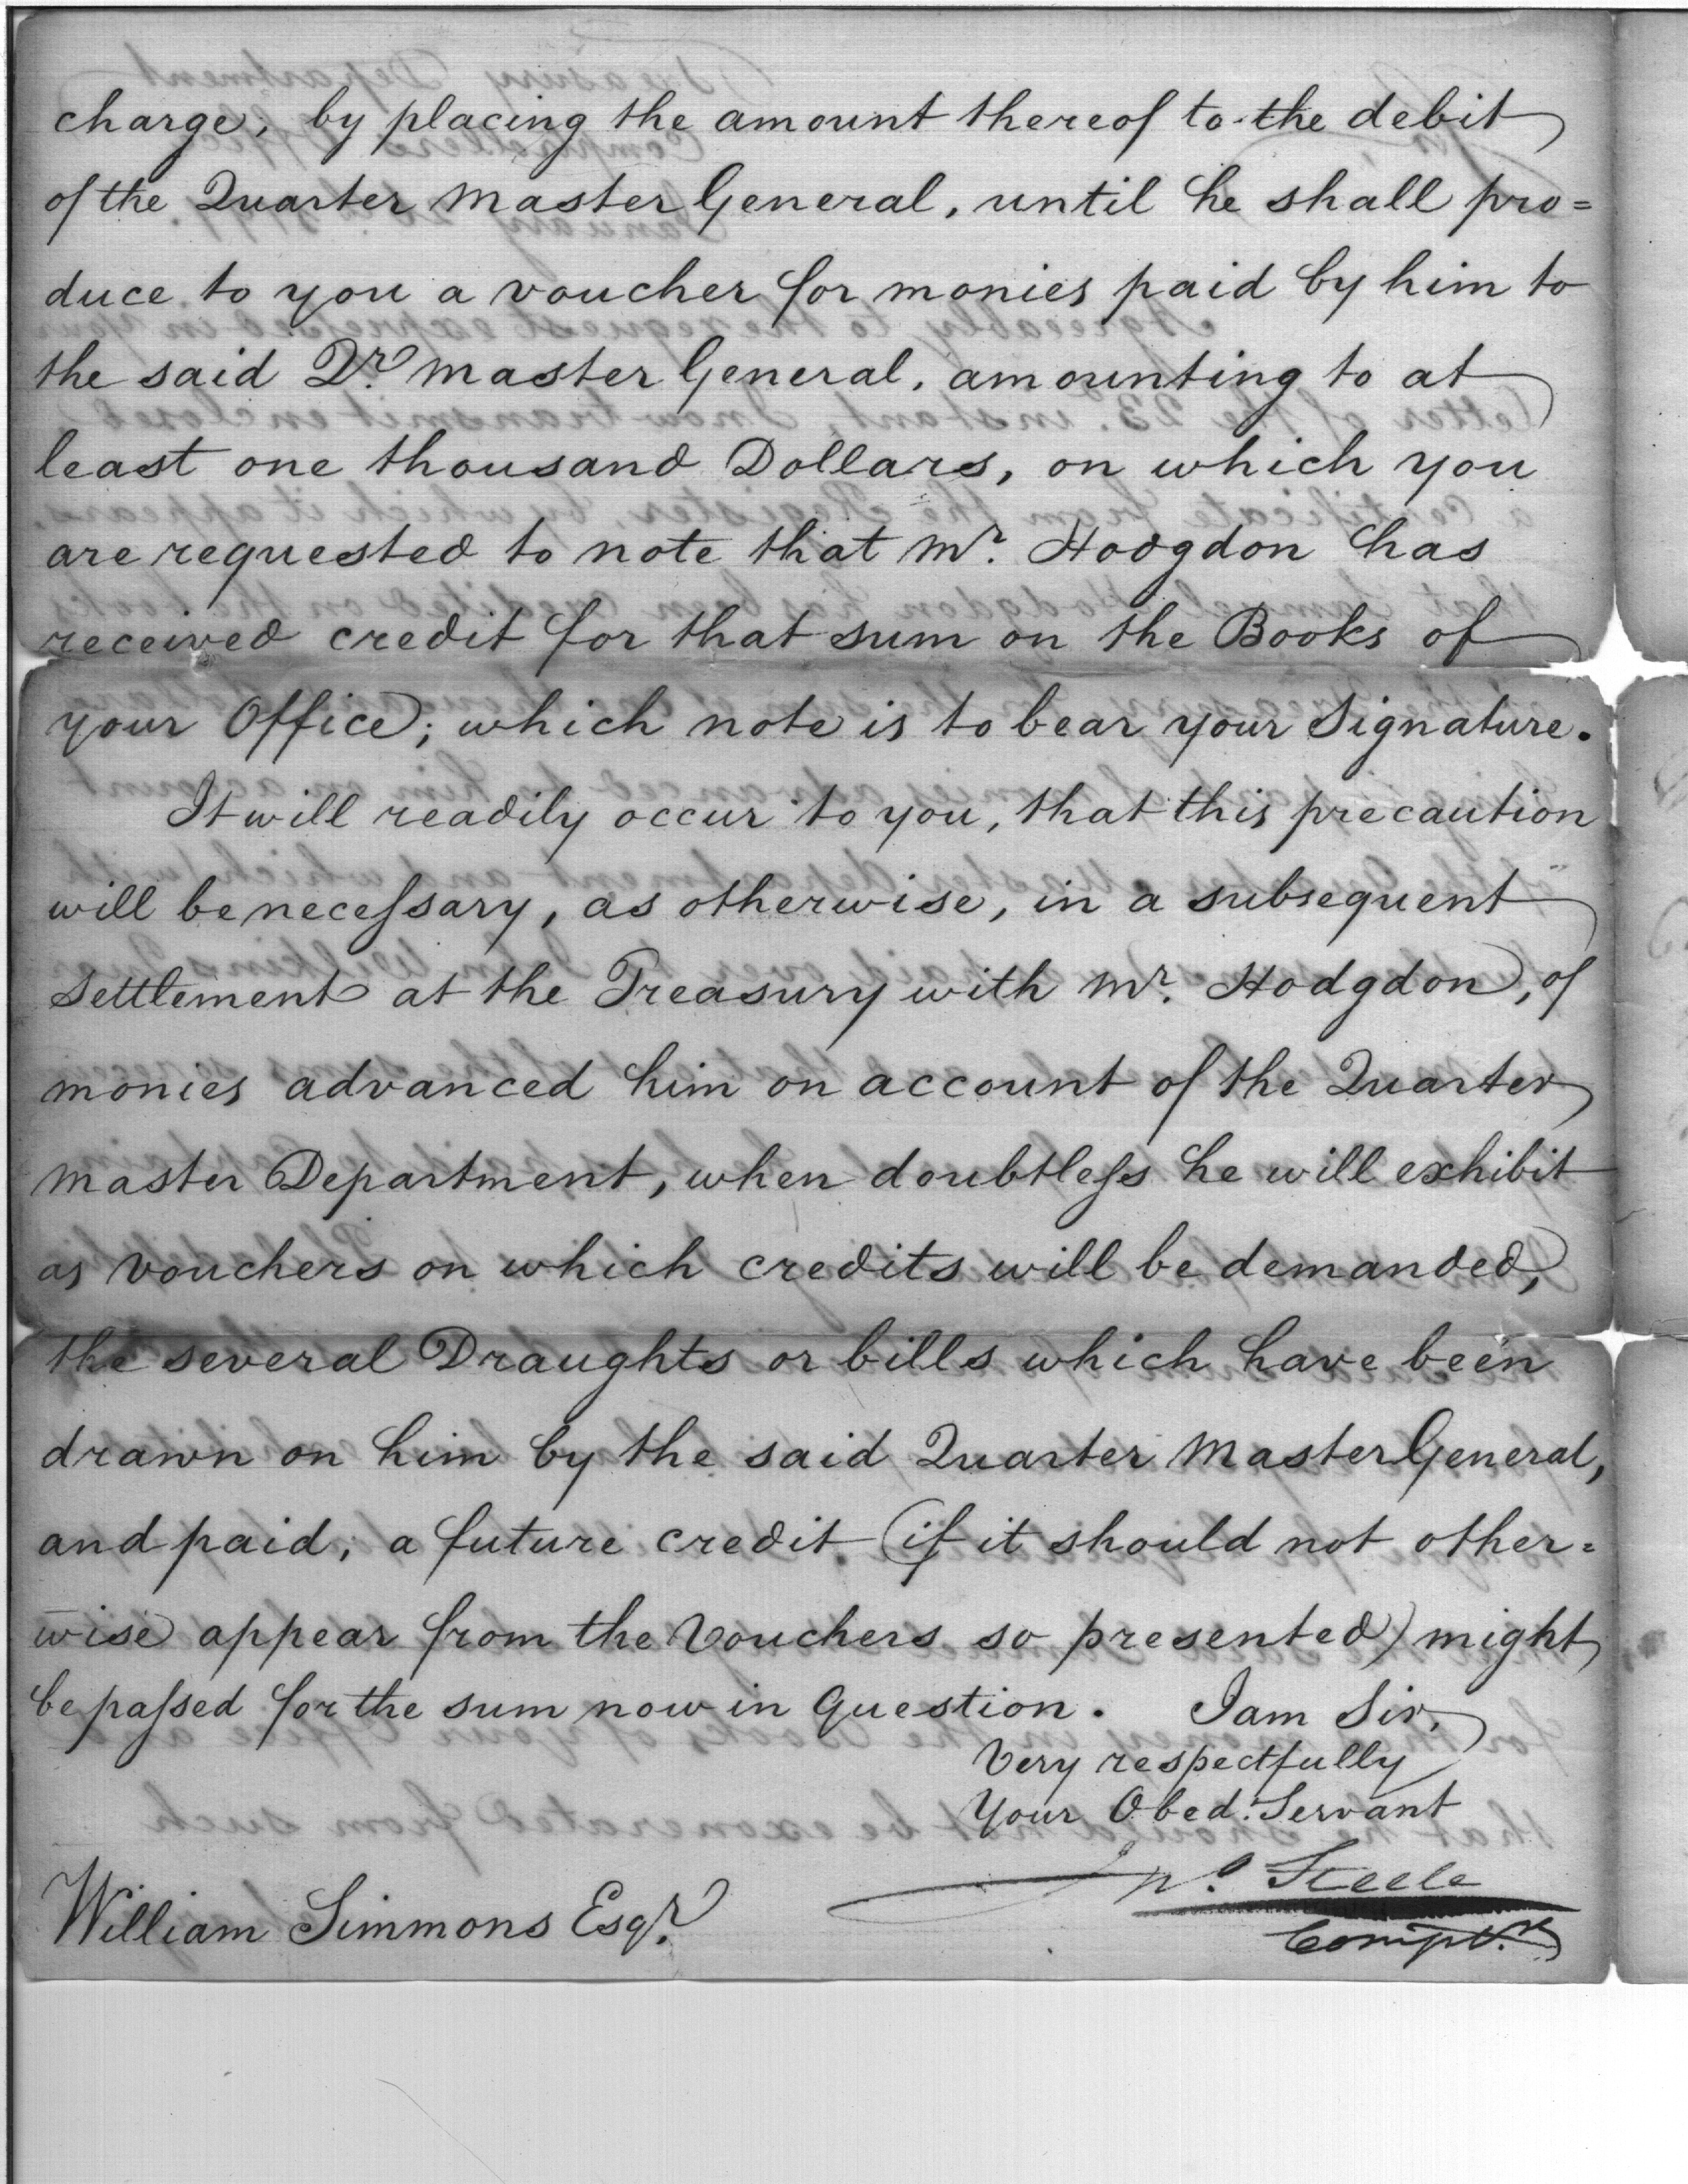 charge, by placing the amount thereof to the debit
of the Quarter Master General, until he shall pro=
duce to you a voucher for monies paid by him to
the said Qr. Master General, amounting to at
least one thousand Dollars, on which you
are requested to note that Mr. Hodgdon has
received credit for that sum on the Books of
your Office; which note is to bear your Signature.
It will readily occur to you, that this precaution
will be neceſsary, as otherwise, in a subsequent
Settlement at the Treasury with Mr. Hodgdon, of
monies advanced him on account of the Quarter
Master Department, when doubtleſs he will exhibit
as vouchers on which credits will be demanded,
the several Draughts or bills which have been
drawn on him by the said Quarter Master General,
and paid, a future credit (if it should not other=
wise appear from the Vouchers so presented) might
be paſsed for the sum now in Question. I am Sir,
Very respectfully
Your Obed. Servant
Jno. Steele
Comptr.
William Simmons Esqr.